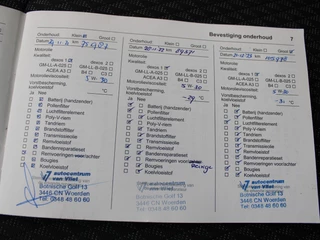 Bevestiging onderhoud 7
Onderhoud: Klein Groot
Datum
Motorolie
Kwaliteit:
dexos 1 dexos 2
GM-LL-A-025 GM-LL-B-025
ACEA A3 B4 C3
Motorolieviscositeit
5W-30
Vorstbescherming,
koelvloeistof °C
Ja Nee
Batterij (handzender)
Pollenfilter
Luchtfilterelement
Poly-V-riem
Tandriem
Brandstoffilter
Transmissieolie
Remvloeistof
Bandenreparatieset
Remvoeringen voor/achter
Bougies
Koelvloeistof
autocentrum
van Vliet
Botnische Golf 13
3446 CN Woerden
Tel: 0348 48 60 60
Onderhoud: Klein Groot
Datum
Motorolie
Kwaliteit:
dexos 1 dexos 2
GM-LL-A-025 GM-LL-B-025
ACEA A3 B4 C3
Motorolieviscositeit
Vorstbescherming,
koelvloeistof °C
Ja Nee
Batterij (handzender)
Pollenfilter
Luchtfilterelement
Poly-V-riem
Tandriem
Brandstoffilter
Transmissieolie
Remvloeistof
Bandenreparatieset
Remvoeringen voor/achter
Bougies
Koelvloeistof
autocentrum
van Vliet
Botnische Golf 13
3446 CN Woerden
Tel: 0348 48 60 60
Onderhoud: Klein Groot
Datum
Motorolie
Kwaliteit:
dexos 1 dexos 2
GM-LL-A-025 GM-LL-B-025
ACEA A3 B4 C3
Motorolieviscositeit
Vorstbescherming,
koelvloeistof °C
Ja Nee
Batterij (handzender)
Pollenfilter
Luchtfilterelement
Poly-V-riem
Tandriem
Brandstoffilter
Transmissieolie
Remvloeistof
Bandenreparatieset
Remvoeringen voor/achter
Bougies
Koelvloeistof
autocentrum
van Vliet
Botnische Golf 13
3446 CN Woerden
Tel: 0348 48 60 60